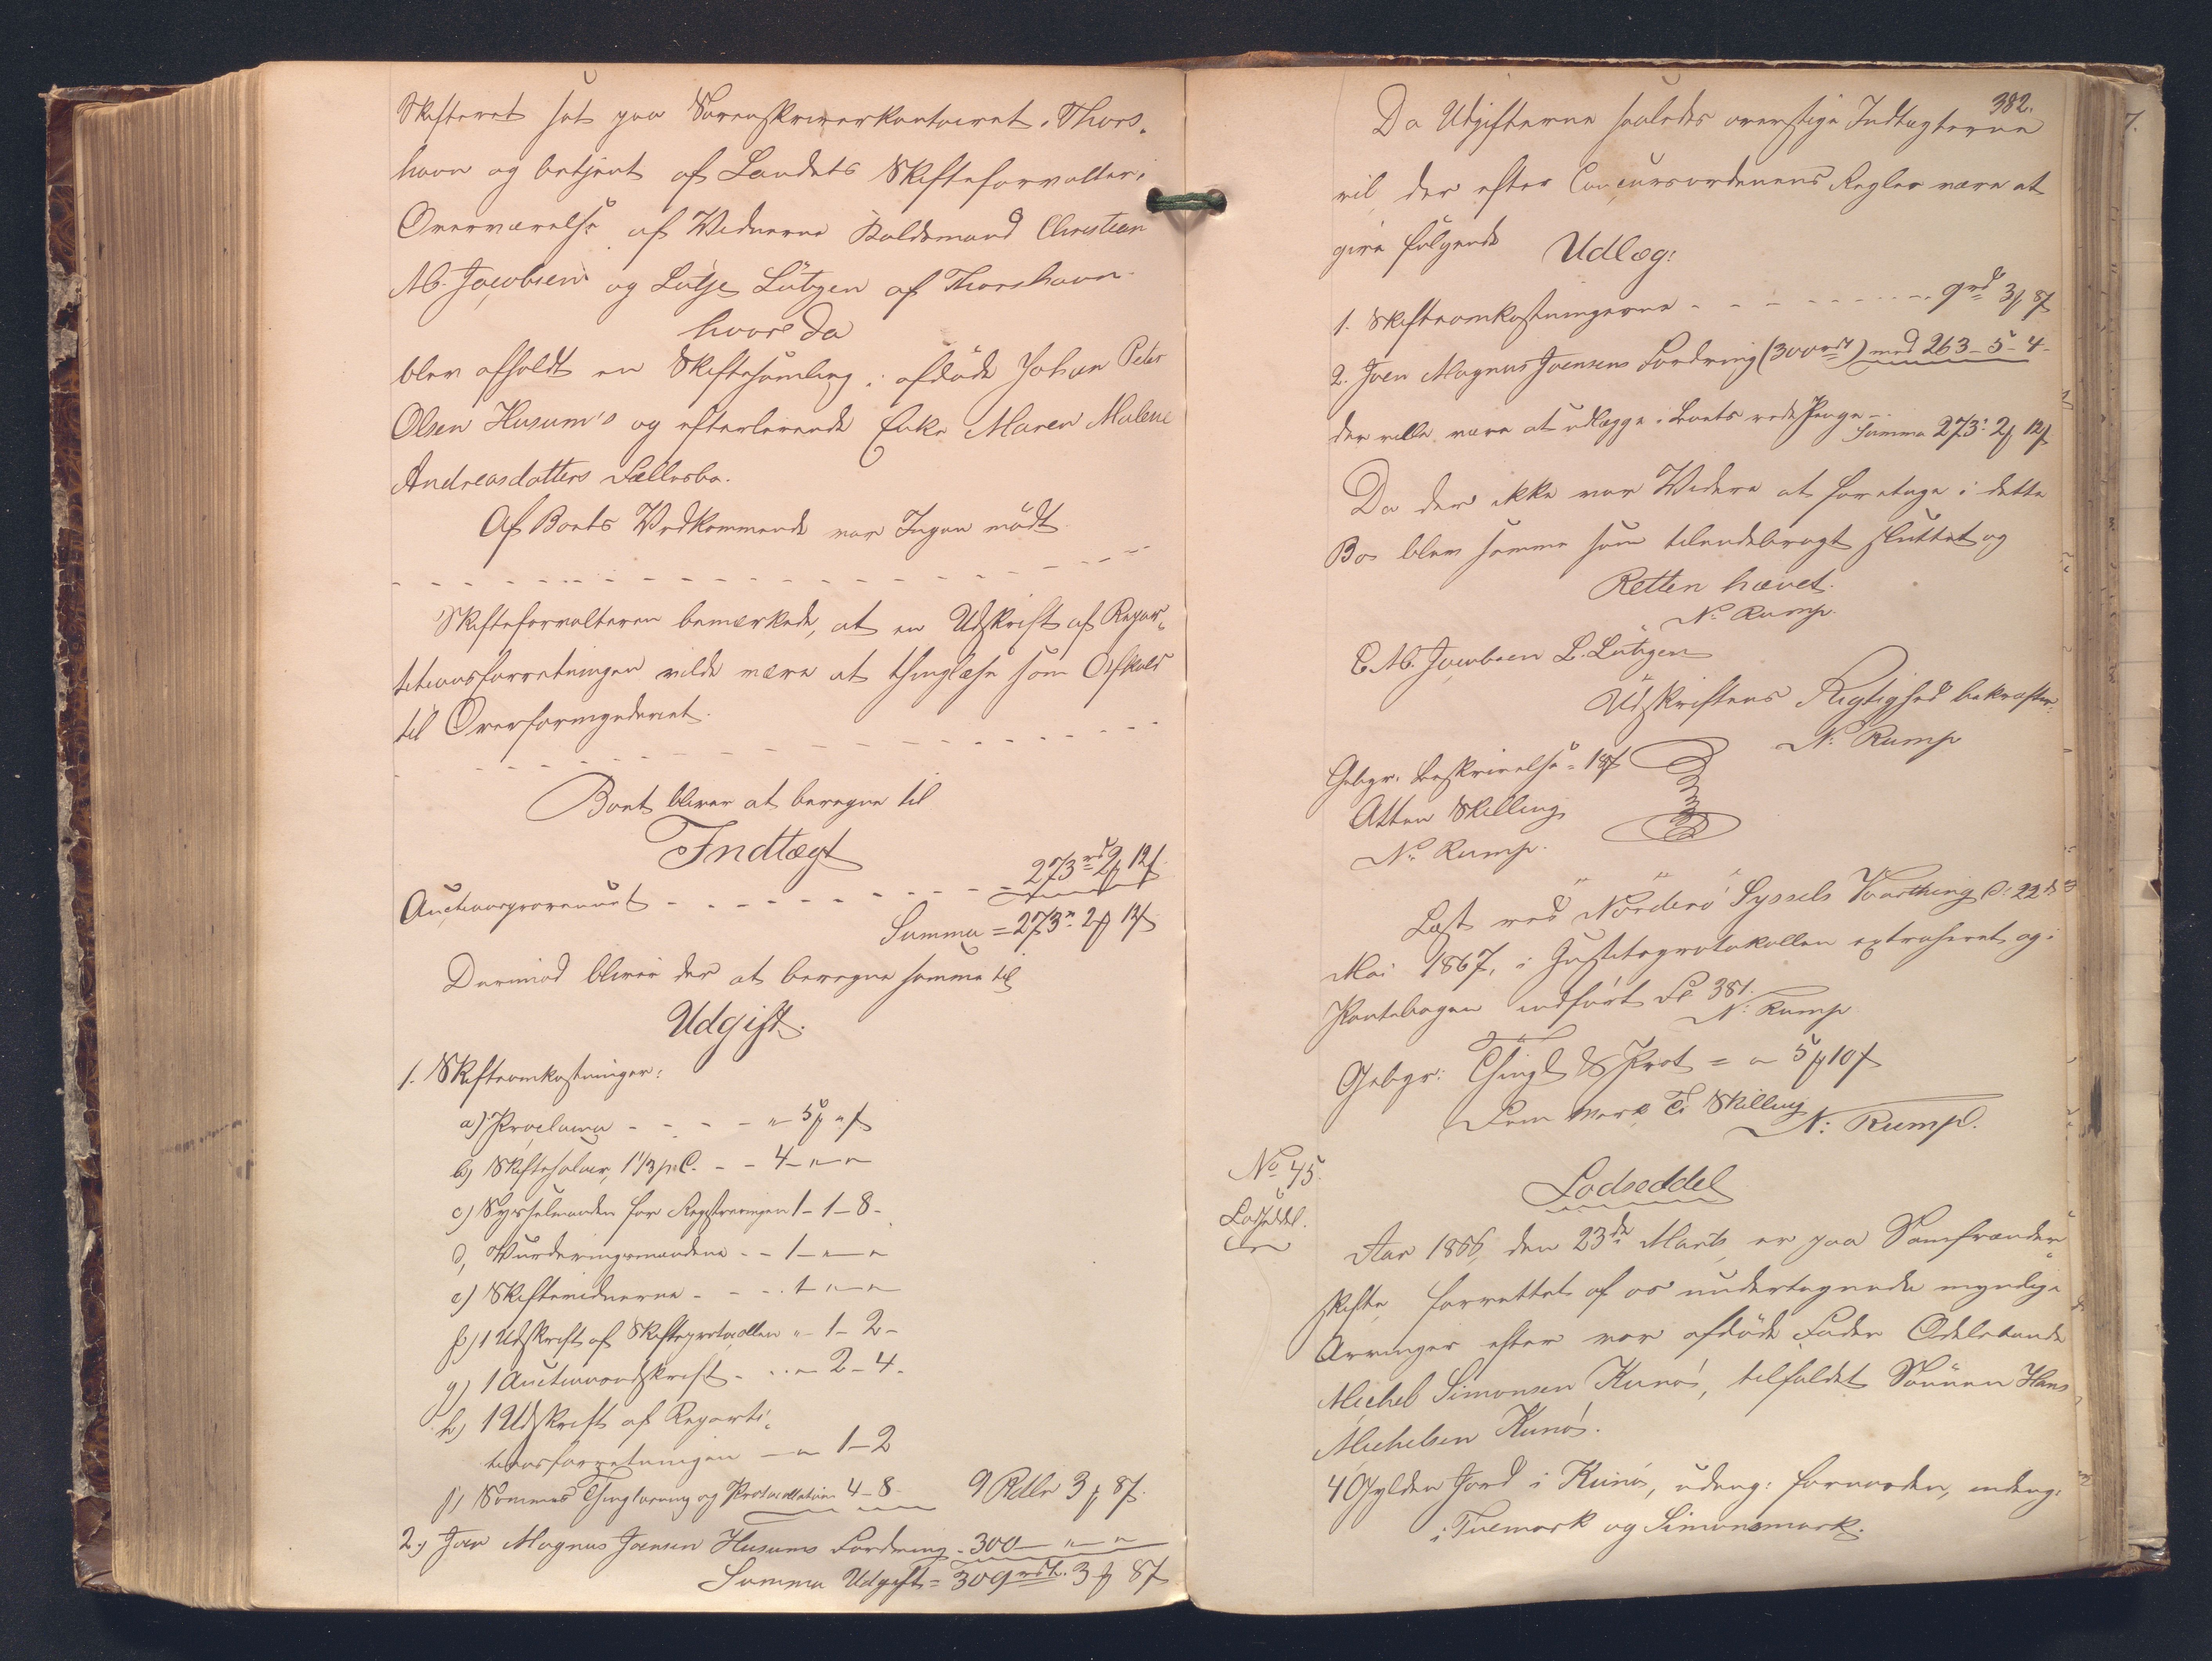 Skifteret sat paa Sorenskriverkontoiret i Thors-
havn og betjent af Landets Skifteforvalter i
Overværelse af Vidnerne Boldsmand Christian
M. Jacobsen og Lütje Lützen af Thorshavn
hvor da
blev afholdt en Skiftesamling i afdøde Johan Peter
Olsen Husum's og efterlevende Enke Maren Malene
Andreasdatters Fællesbo.
Af Boets Vedkommende var Ingen mødt
Skifteforvalteren bemærkede, at en Udskrift af Repar-
titionsforretningen vilde være at thinglæse som Adkomst
til Overformynderiet.
Boet bliver at beregne til
Indtægt
Auctionsprovenuet - - - 273 rd 2 ℳ 12 ß
Summa = 273 " 2 ℳ 12 ß
Derimod bliver der at beregne samme til
Udgift.
1. Skifteomkostninger:
a) Proclama - - - - " 5 ℳ " ß
b) Skiftesalair, 1 1/3 pC. - - 4 - " - "
c) Sysselmanden for Registreringen 1 - 1 - 8 -
d, Vurderingsmændene - - 1 - " - "
e) Skiftevidnerne - - - 1 - " - "
f) 1 Udskrift af Skifteprotocollen " - 1 - 2 -
g) 1 Auctionsudskrift - - " - 2 - 4 -
h) 1 Udskrift af Reparti-
tionsforretningen - " - 1 - 2
i) Sammes Thinglæsning og Protocollation 4 - 8 - 9 Rdlr 3 ℳ 8 ß.
2.) Joen Magnus Joensen Husums Fordring - 300 - " - "
Summa Udgift = 309 rdl. 3 ℳ 8 ß
382.
Da Udgifterne saaledes overstige Indtægterne
vil der efter Concursordenens Regler være at
give følgende
Udlæg:
1. Skifteomkostningerne - - - 9 rd 3 ℳ 8 ß
2. Joen Magnus Joensens Fordring (300 rd) med 263 - 5 - 4 -
der ville være at udlægge i Boets rede Penge - - Summa 273 " 2 ℳ 12 ß
Da der ikke var Videre at foretage i dette
Bo blev samme som tilendebragt sluttet og
Retten hævet.
N. Rump.
C. M. Jacobsen L. Lützen
Udskriftens Rigtighed bekræfter
N. Rump
Gebyr: Beskrivelse = 18 ß
Atten Skilling
N. Rump.
Læst ved Norderø Syssels Vaarthing d: 22de
Mai 1867, i Justitsprotokollen extraheret og i
Pantebogen indført Fol 381.
N. Rump
Gebyr: Thingl & Prot = " 5 ℳ 10 ß
Fem Mark Ti Skilling
N: Rump.
No 45.
Lodseddel.
Lodseddel
Aar 1866, den 23de Marts, er paa Samfrænde-
skifte, forrettet af os undertegnede myndige
Arvinger efter vor afdøde Fader Odelsbonde
Michel Simonsen Kunø, tilfaldet Sønnen Hans
Michelsen Kunø.
4 Gylden Jord i Kunø, udeng: fornorden, indeng:
i Tuemark og Simonsmark.